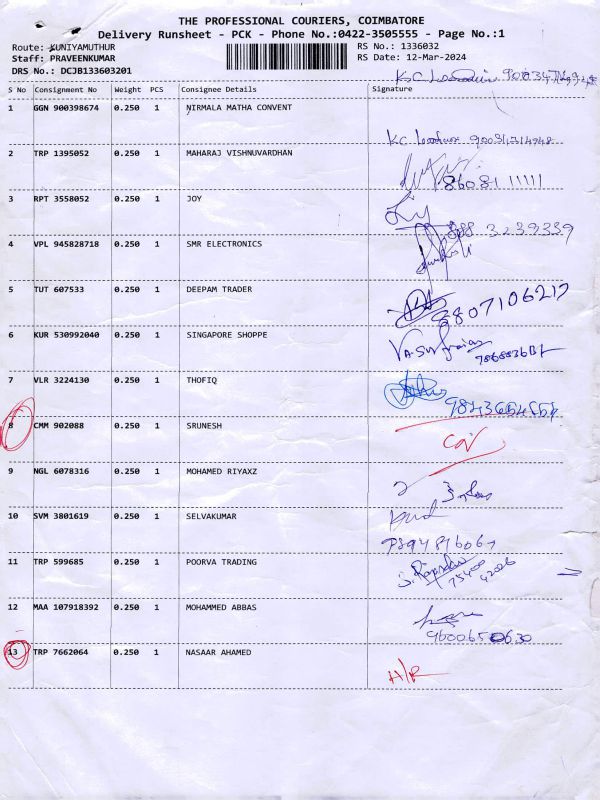 THE PROFESSIONAL COURIERS, COIMBATORE
Delivery Runsheet - PCK - Phone No.:0422-3505555 - Page No.:1
Route: KUNIYAMUTHUR RS No.: 1336032
Staff: PRAVEENKUMAR RS Date: 12-Mar-2024
DRS No.: DCJB133603201
S No Consignment No Weight PCS Consignee Details Signature
1 GGN 900398674 0.250 1 NIRMALA MATHA CONVENT
2 TRP 1395052 0.250 1 MAHARAJ VISHNUVARDHAN
86081 11111
3 RPT 3558052 0.250 1 JOY
4 VPL 945828718 0.250 1 SMR ELECTRONICS
5 TUT 607533 0.250 1 DEEPAM TRADER
8807106217
6 KUR 530992040 0.250 1 SINGAPORE SHOPPE
7 VLR 3224130 0.250 1 THOFIQ
8 CMM 902088 0.250 1 SRUNESH
9 NGL 6078316 0.250 1 MOHAMED RIYAXZ
10 SVM 3801619 0.250 1 SELVAKUMAR
11 TRP 599685 0.250 1 POORVA TRADING
75400
42026
12 MAA 107918392 0.250 1 MOHAMMED ABBAS
9600650630
13 TRP 7662064 0.250 1 NASAAR AHAMED
H/R